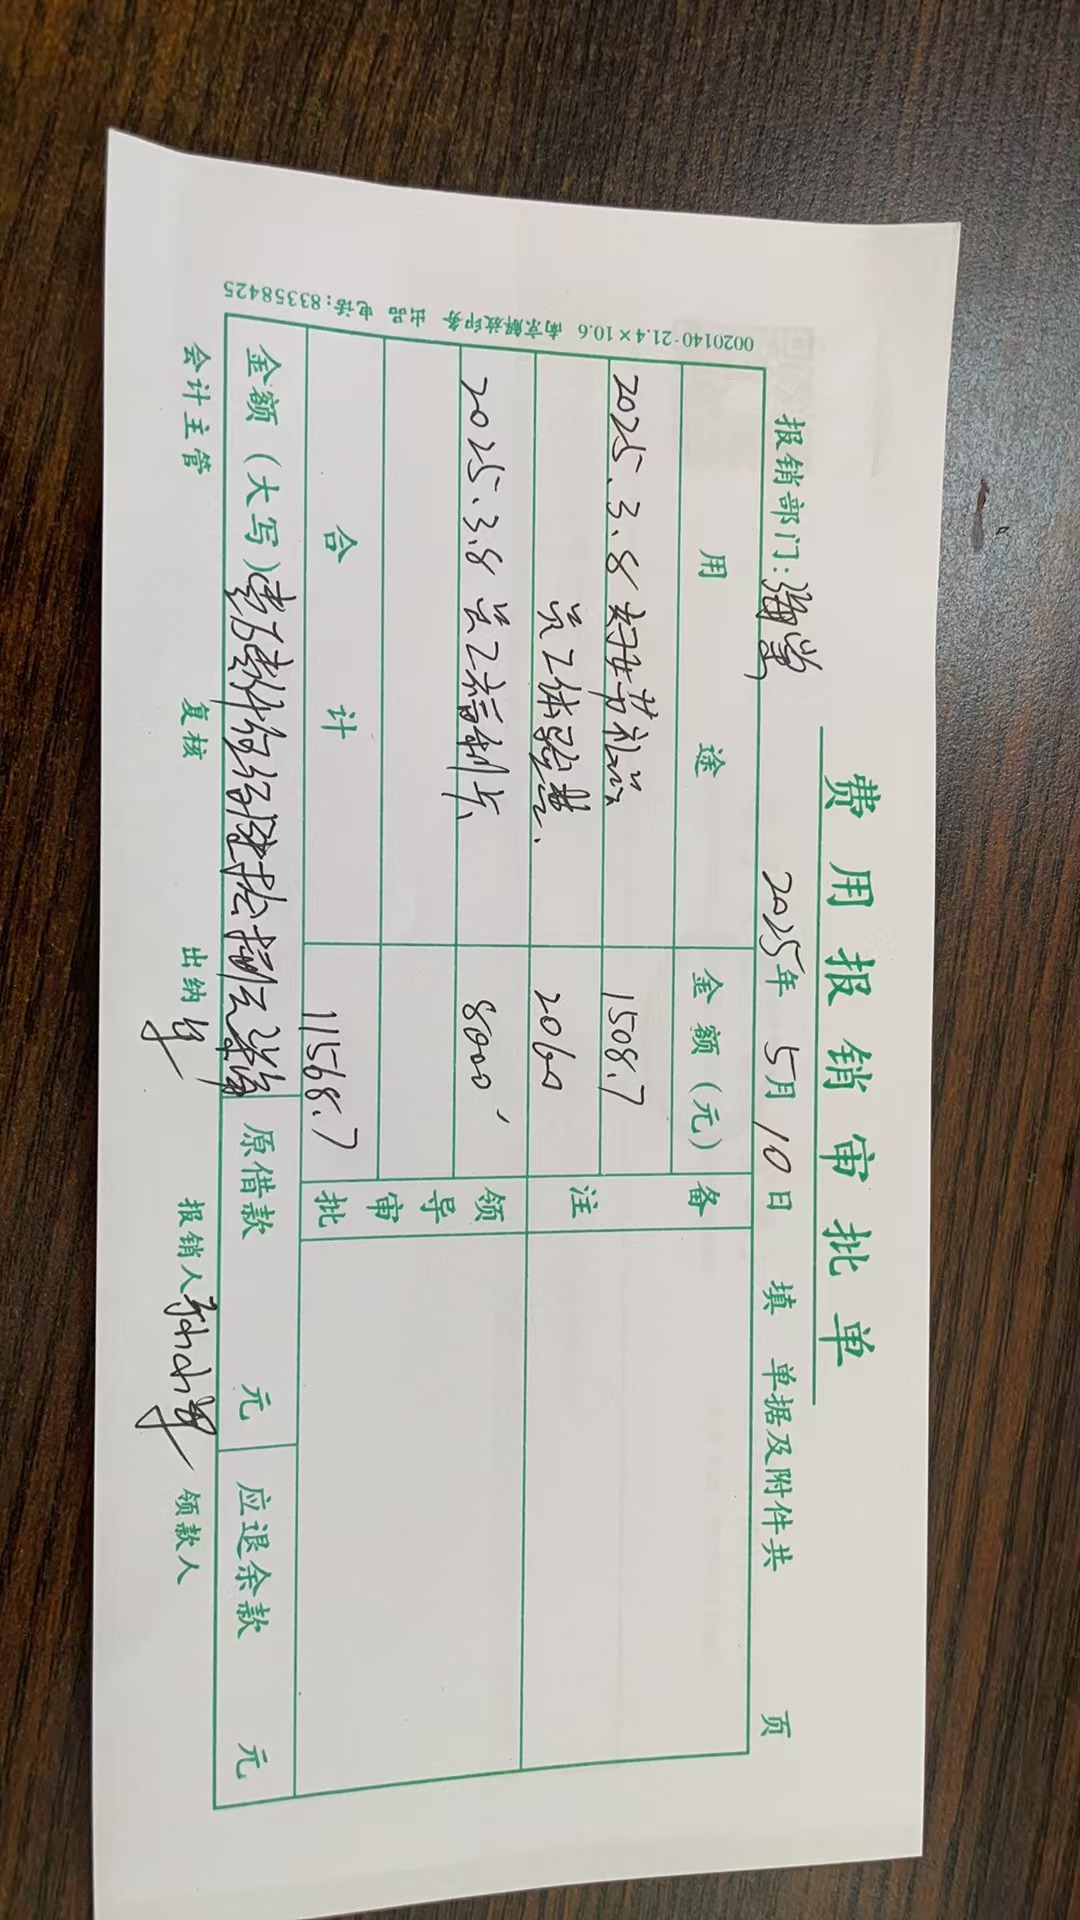 费用报销审批单
报销部门: 2025年 5月 10日 填 单据及附件共 页
用途 金额（元） 备注
2025.3.8 妇女节礼品 1508.7
员工体验费. 2060
2025.3.8 员工福利卡 8000 领导审批
合计 11568.7
金额（大写）壹万壹仟伍佰陆拾捌元柒角 原借款 元 应退余款 元
会计主管 复核 出纳 报销人 领款人
0020140-21.4×10.6 南京解放印务 出品 电话:83358425